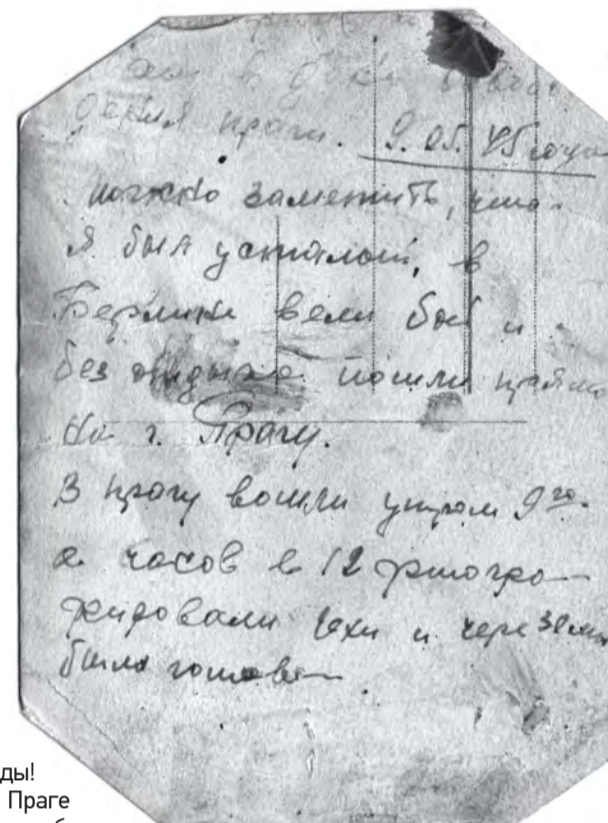 в
Праги. 9.05.45 года
можно заметить, что
я был усталой, в
Берлине вели бои и
без отдыха пошли прямо
на г. Прагу.
В прагу вошли утром 9го.
а часов в 12 фтогра-
фировали чехи и через 30 мин
было готово
ды!
Праге